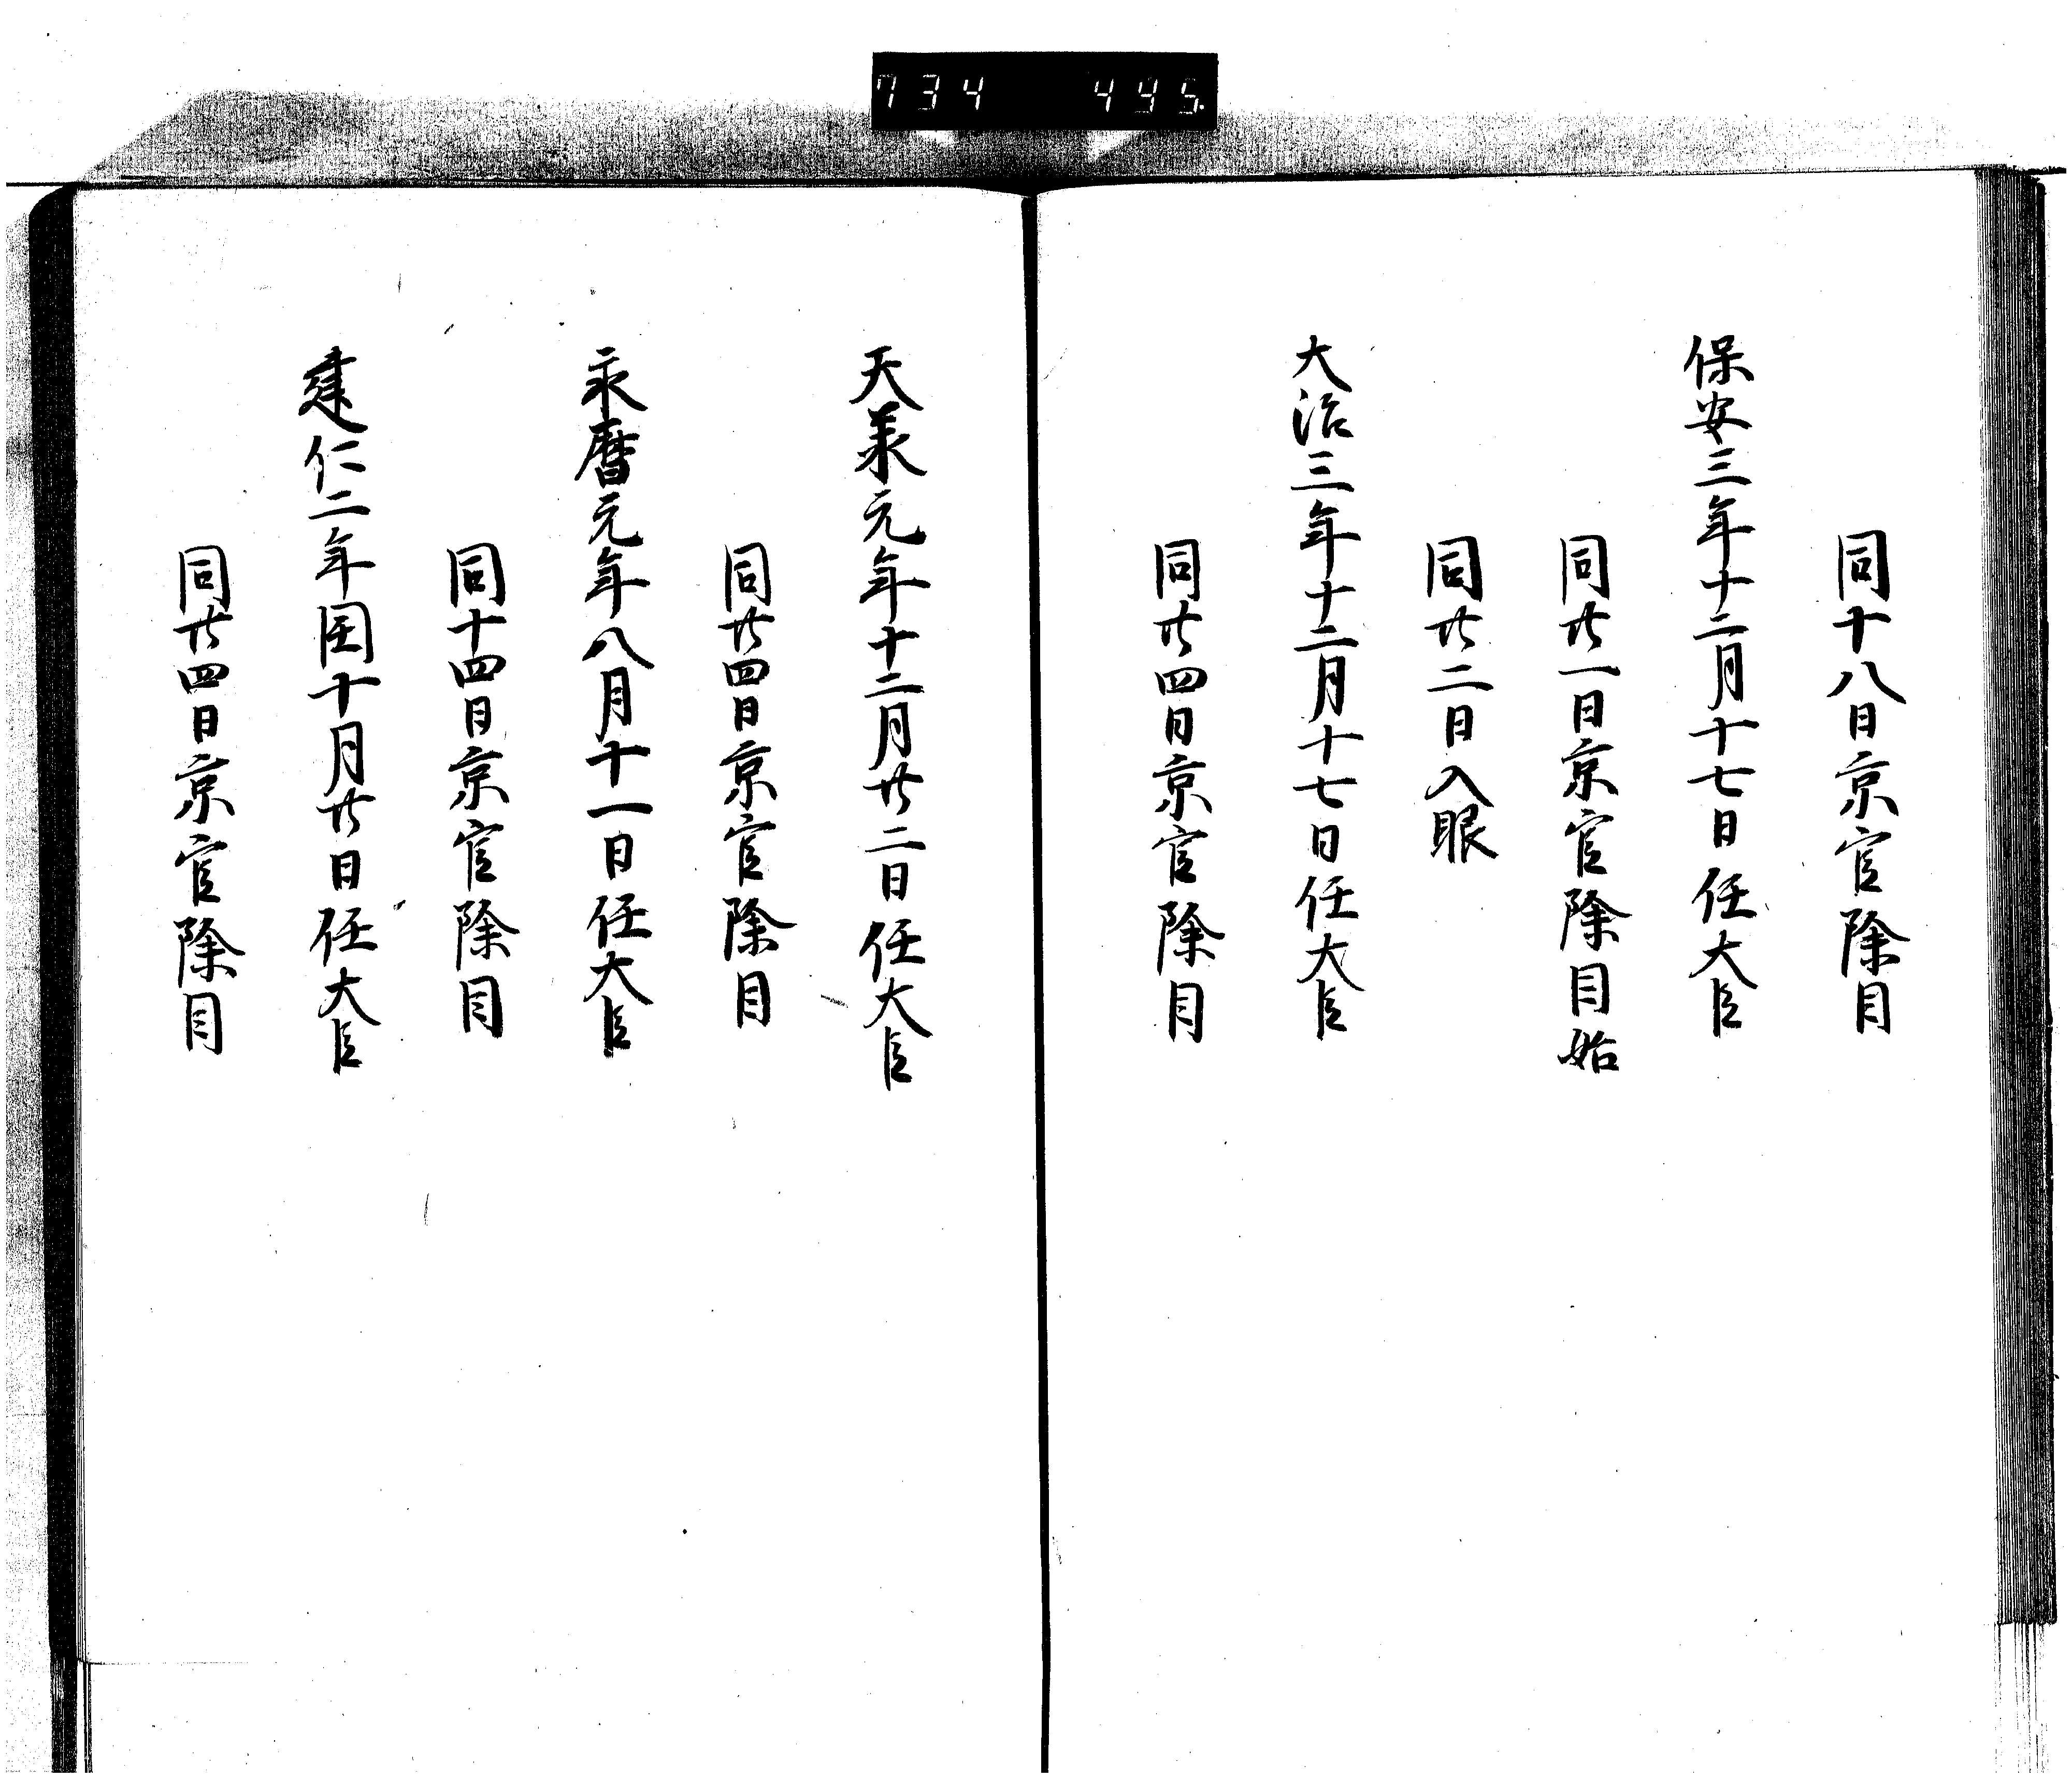 734 495
同十八日京官除目
保安三年十二月十七日任大臣
同廿一日京官除目始
同廿二日入眼
大治三年十二月十七日任大臣
同廿四日京官除目
天承元年十二月廿二日任大臣
同廿四日京官除目
永暦元年八月十一日任大臣
同十四日京官除目
建仁二年閏十月廿日任大臣
同廿四日京官除目